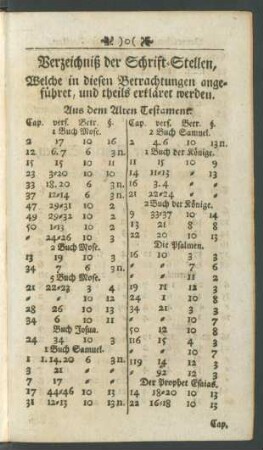 )o(
Verzeichniß der Schrift-Stellen,
Welche in diesen Betrachtungen ange-
führet, und theils erkläret werden.
Aus dem Alten Testament.
Cap. vers. Betr. §.
1 Buch Mose.
2 17 10 16
12 6.7 6 3 n.
15 15 10 11
23 3=20 10 10
33 18.20 6 3 n.
37 12=14 6 3 n.
47 29=31 10 2
49 29=32 10 2
50 1=13 10 2
" 24=26 10 3
2 Buch Mose.
13 19 10 3
34 7 6 3 n.
5 Buch Mose.
21 22=23 3 4
" " 10 12
28 26 10 13
34 6 10 11
Buch Josua.
24 34 10 3
1 Buch Samuel.
1 1.14.20 6 3 n.
3 21 " "
7 17 " "
31 12=13 10 13 n.
Cap. vers. Betr. §.
2 Buch Samuel.
2 4.6 10 13 n.
1 Buch der Könige.
11 15 10 9
14 11=13 10 13
16 4 " "
21 22=24 " "
2 Buch der Könige.
9 33=37 10 14
13 21 8 8
22 20 10 13
Die Psalmen.
16 10 3 3
" " 7 3
" " 11 2
22 3 3 3
24 1 10 8
34 21 10 8
50 12 10 8
90 3 3 3
116 15 10 3
119 14 12 3
" 92 12 3
Der Prophet Esaias.
14 18=20 10 13
22 16=18 10 13
Cap.